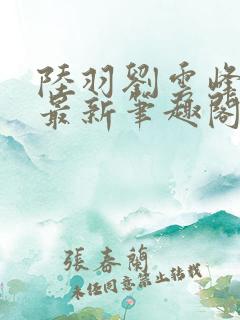 陸羽劉雲峰
最新筆趣閣
張春蘭
未經同意禁止轉載